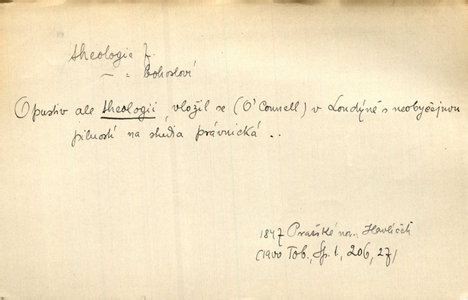 theologie f.
— „ — bohosloví
Opustiv ale theologii, vložil se (O'Connell) v Londýně s neobyčejnou
pilností na studia právnická ..
1847 Pražské nov. Havlíček
(1900 Tob., Sp. 1, 206, 27)